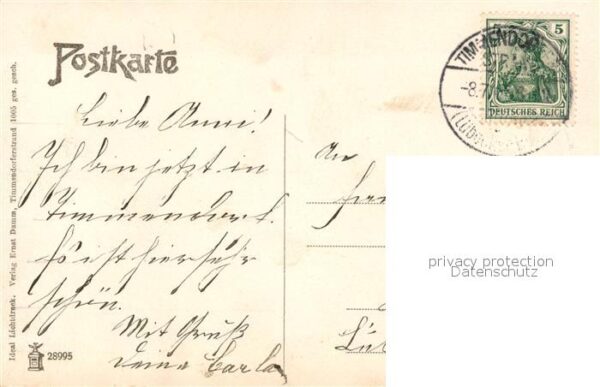 Postkarte
5
TIMMENDOR
-8.7
DEUTSCHES REICH
Liebe Anni!
Ich bin jetzt in
Timmendorf.
Es ist hier sehr
schön.
Mit Gruß
Deine Carla
An
Lüb
Ideal Lichtdruck. Verlag Ernst Damm, Timmendorferstrand 1005 ges. gesch.
28995
privacy protection
Datenschutz